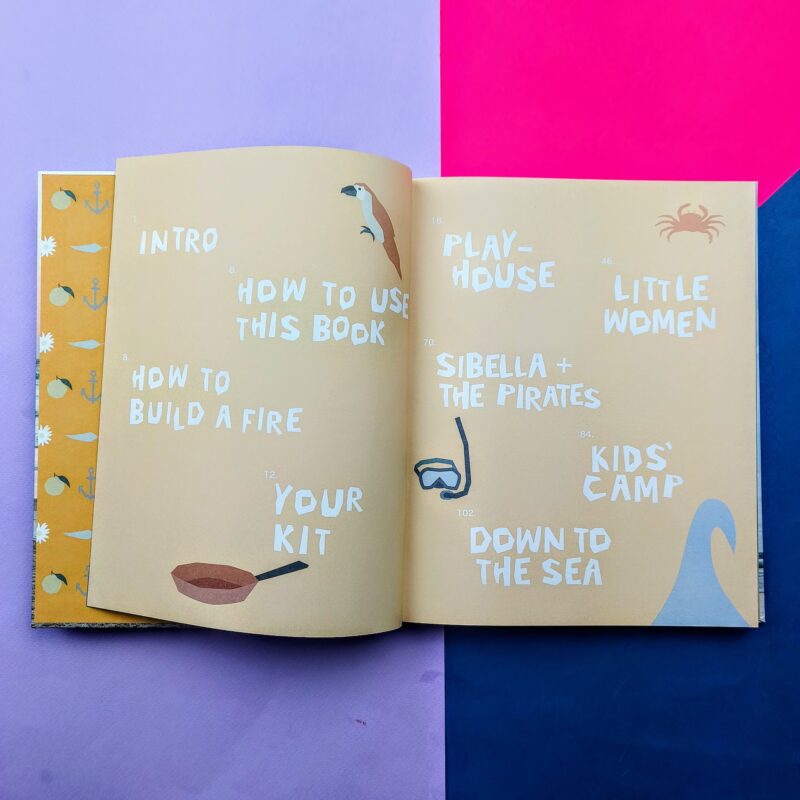 1.
INTRO
6.
HOW TO USE
THIS BOOK
8.
HOW TO
BUILD A FIRE
12.
YOUR
KIT
16.
PLAY-
HOUSE
46.
LITTLE
WOMEN
70.
SIBELLA +
THE PIRATES
84.
KIDS'
CAMP
102.
DOWN TO
THE SEA